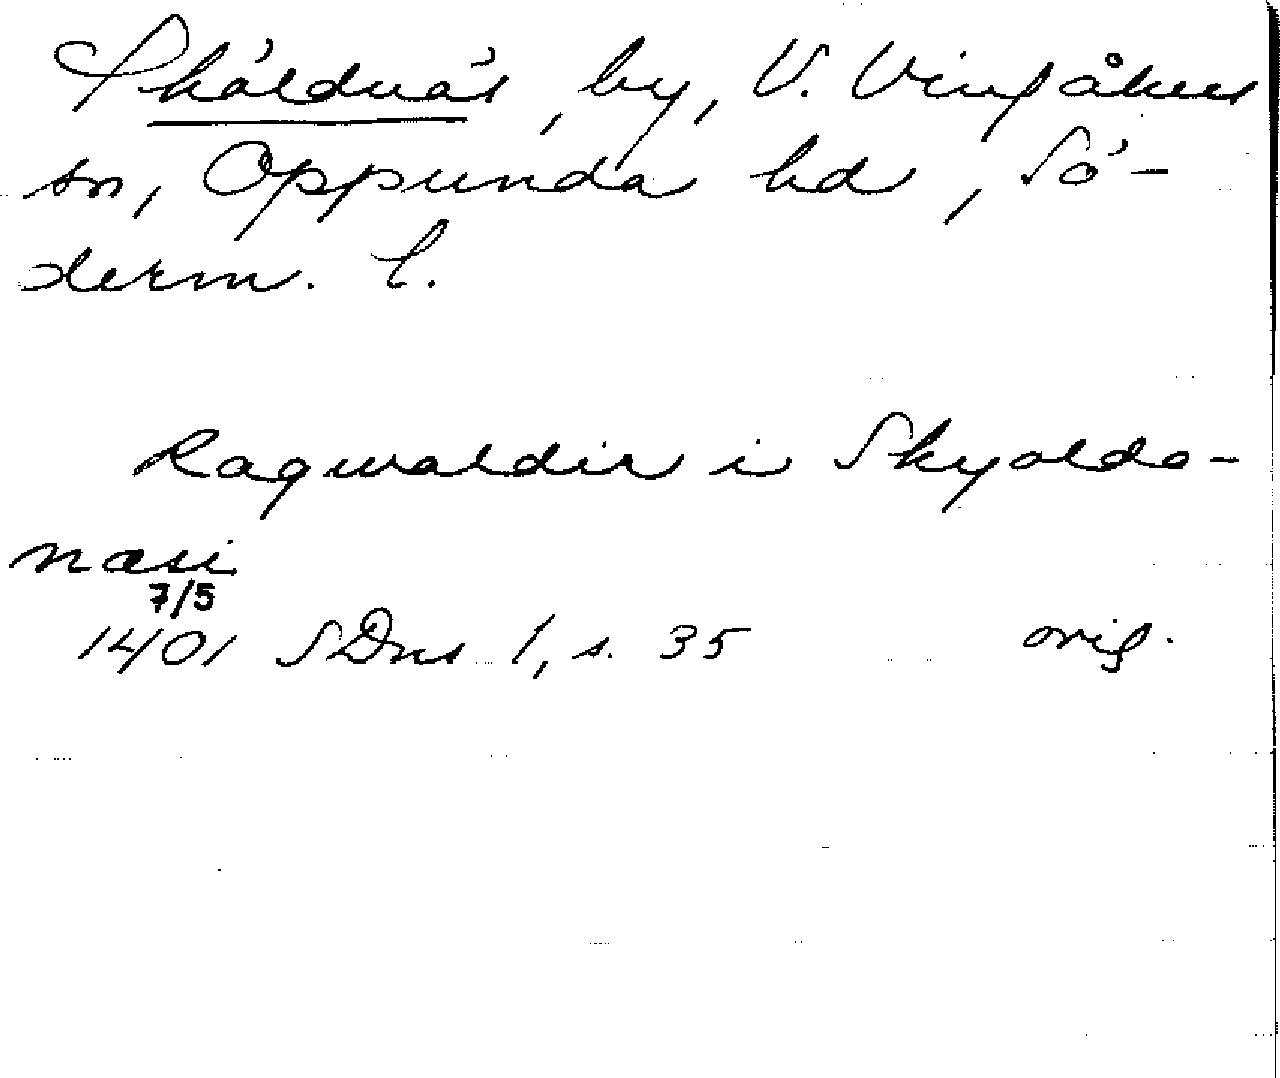 Skäldnäs, by, V. Vingåkers
sn, Oppunda hd, Sö-
derm. l.
Ragwaldir i Skyolda-
næsi
7/5
1401 SDns 1, s. 35 orig.